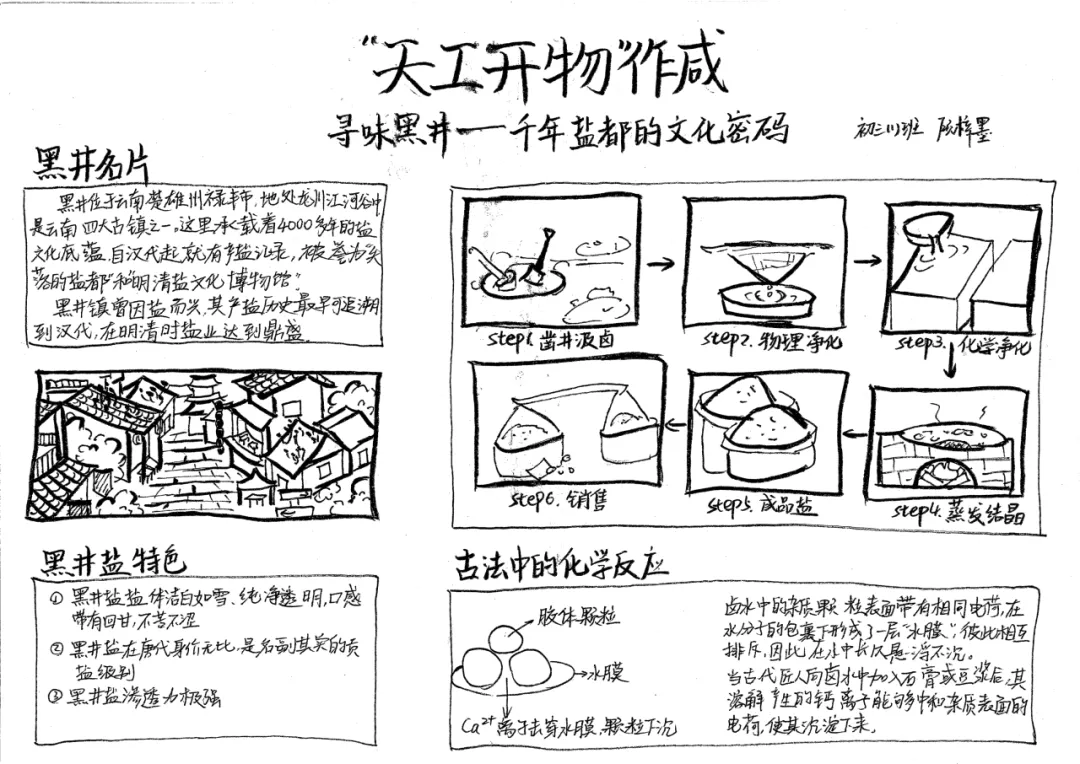 “天工开物”作咸
寻味黑井——千年盐都的文化密码
初三(1)班 陈梓墨
黑井名片
黑井位于云南楚雄州禄丰市,地处龙川江河谷中
是云南四大古镇之一。这里承载着4000多年的盐
文化底蕴,自汉代起就有产盐记录,被誉为“失
落的盐都”和“明清盐文化博物馆”。
黑井镇曾因盐而兴,其产盐历史最早可追溯
到汉代,在明清时盐业达到鼎盛。
step1.凿井汲卤
step2.物理净化
step3.化学净化
step4.蒸发结晶
step5.成品盐
step6.销售
黑井盐特色
① 黑井盐盐体洁白如雪、纯净透明,口感
带有回甘,不苦不涩
② 黑井盐在唐代身价无比,是名副其实的贡
盐级别
③ 黑井盐渗透力极强
古法中的化学反应
胶体颗粒
水膜
Ca²⁺离子击穿水膜,颗粒下沉
卤水中的杂质颗粒表面带有相同电荷,在
水分子的包裹下形成了一层“水膜”,彼此相互
排斥,因此在水中长久悬浮不沉。
当古代匠人向卤水中加入石膏或豆浆后,其
溶解产生的钙离子能够中和杂质表面的
电荷,使其沉淀下来。